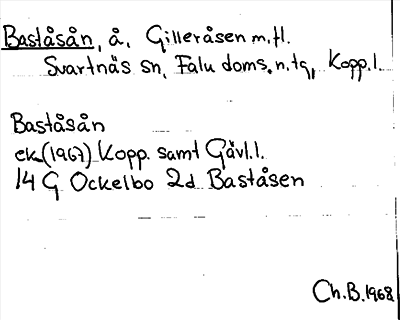 Baståsån, å, Gilleråsen m.fl.
Svartnäs sn, Falu doms.n.tg, Kopp.l.
Baståsån
ek.(1967) Kopp. samt Gävl.l.
14 G Ockelbo 2d Baståsen
Ch.B.1968